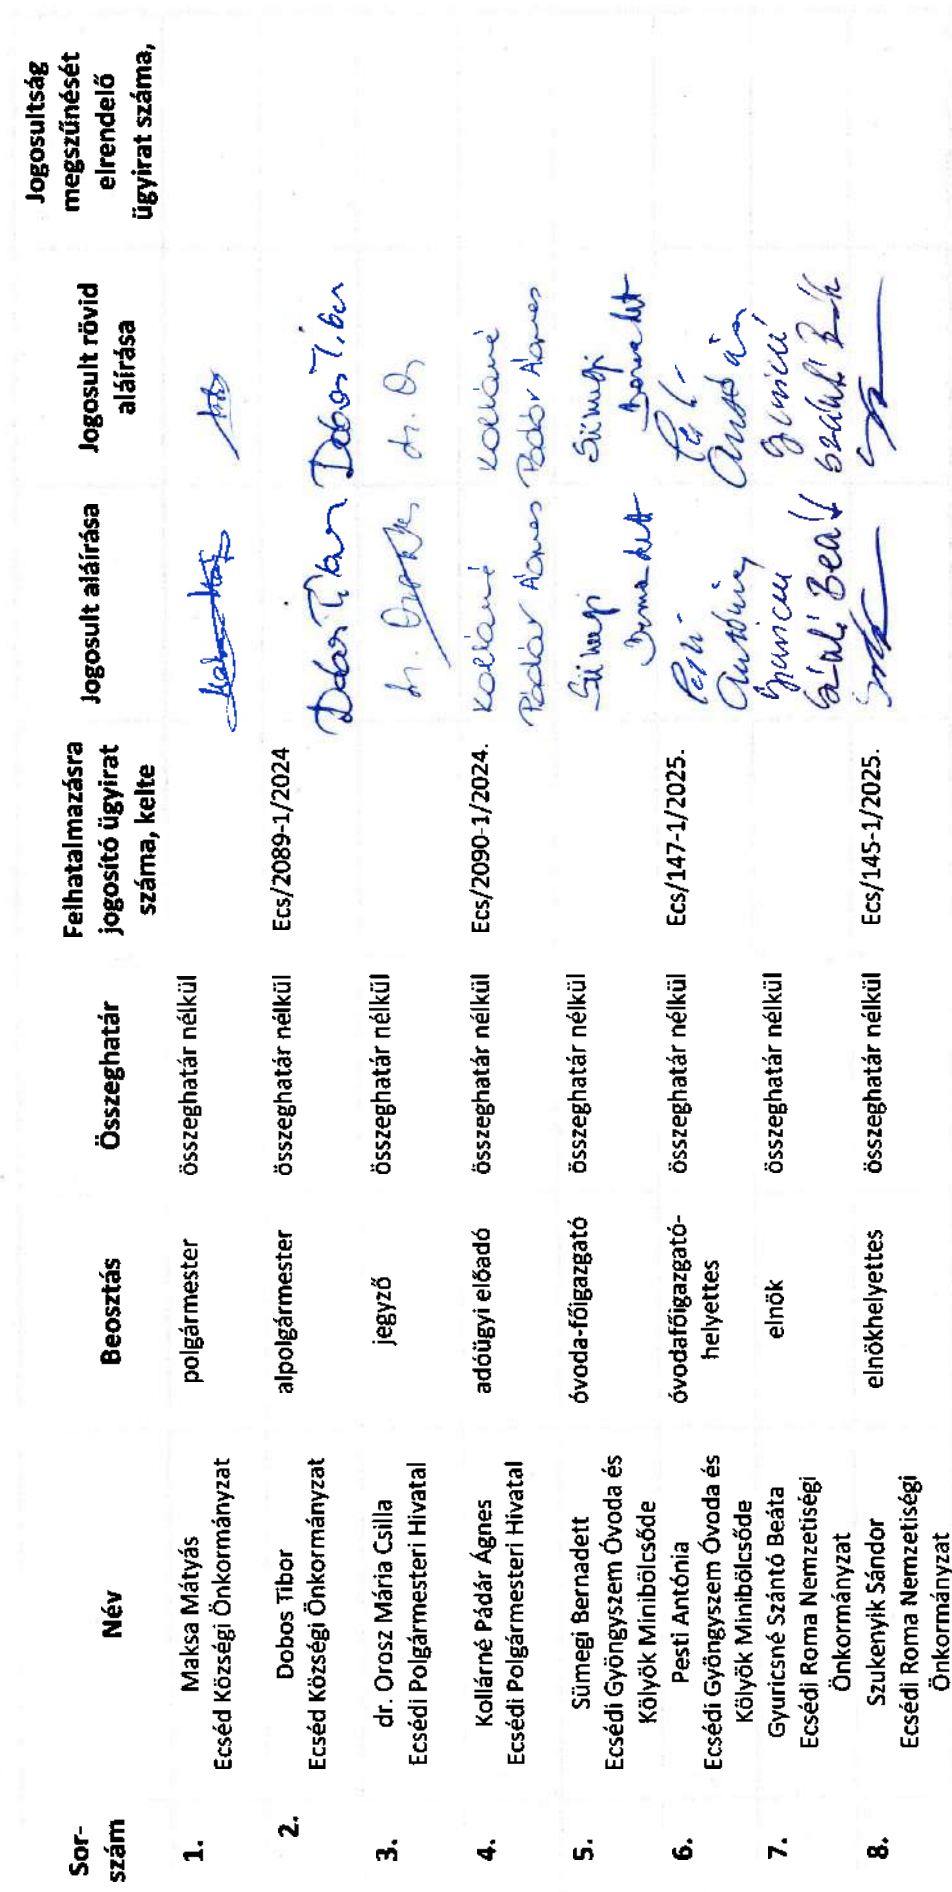 Sor-
szám
Név
Beosztás
Összeghatár
Felhatalmazásra
jogosító ügyirat
száma, kelte
Jogosult aláírása
Jogosult rövid
aláírása
Jogosultság
megszűnését
elrendelő
ügyirat száma,
1.
Maksa Mátyás
Ecséd Községi Önkormányzat
polgármester
összeghatár nélkül
2.
Dobos Tibor
Ecséd Községi Önkormányzat
alpolgármester
összeghatár nélkül
Ecs/2089-1/2024
Dobos Tibor
Dobos Tibor
3.
dr. Orosz Mária Csilla
Ecsédi Polgármesteri Hivatal
jegyző
összeghatár nélkül
dr.
dr. O
4.
Kollárné Pádár Ágnes
Ecsédi Polgármesteri Hivatal
adóügyi előadó
összeghatár nélkül
Ecs/2090-1/2024.
Kollárné
Pádár Ágnes
Kollárné
Pádár Ágnes
5.
Sümegi Bernadett
Ecsédi Gyöngyszem Óvoda és
Kölyök Minibölcsőde
óvoda-főigazgató
összeghatár nélkül
Sümegi
Bernadett
Sümegi
Bernadett
6.
Pesti Antónia
Ecsédi Gyöngyszem Óvoda és
Kölyök Minibölcsőde
óvodafőigazgató-
helyettes
összeghatár nélkül
Ecs/147-1/2025.
Pesti
Antónia
Antónia
7.
Gyuricsné Szántó Beáta
Ecsédi Roma Nemzetiségi
Önkormányzat
elnök
összeghatár nélkül
8.
Szukenyik Sándor
Ecsédi Roma Nemzetiségi
Önkormányzat
elnökhelyettes
összeghatár nélkül
Ecs/145-1/2025.